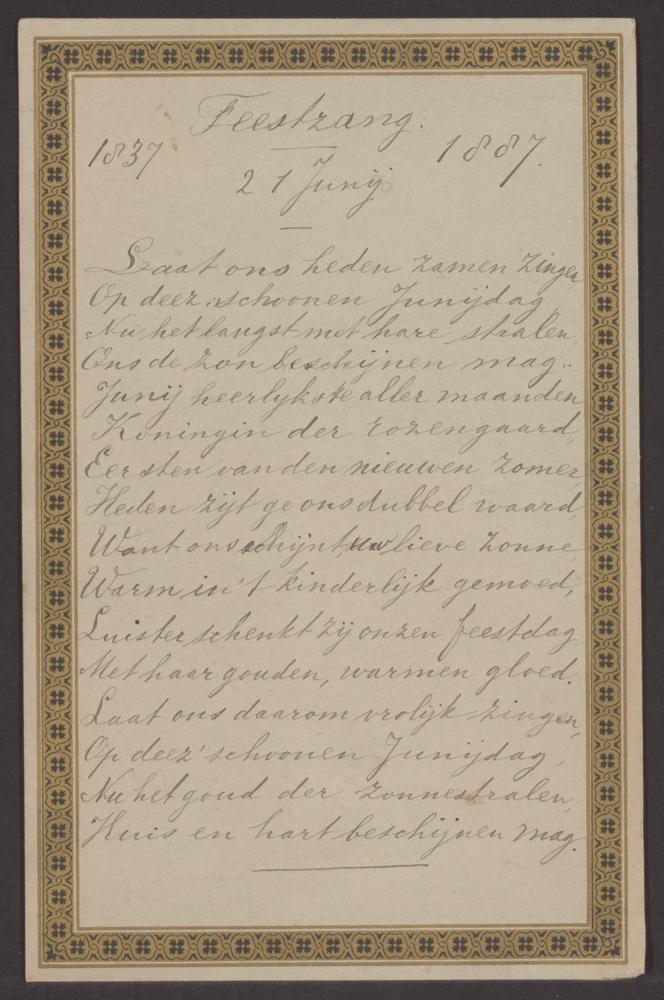 Feestzang.
1837 1887.
21 Junij
Laat ons heden zamen zingen
Op deez' schoonen Junijdag,
Nu het langst met hare stralen,
Ons de zon beschijnen mag.
Junij heerlykste aller maanden
Koningin der rozengaard,
Eersten van den nieuwen zomer,
Heden zijt ge ons dubbel waard,
Want ons schijnt uw lieve zonne,
Warm in 't kinderlijk gemoed,
Luister schenkt zij onzen feestdag
Met haar gouden, warmen gloed.
Laat ons daarom vrolijk zingen,
Op deez' schoonen Junijdag,
Nu het goud der zonnestralen,
Huis en hart beschijnen mag.